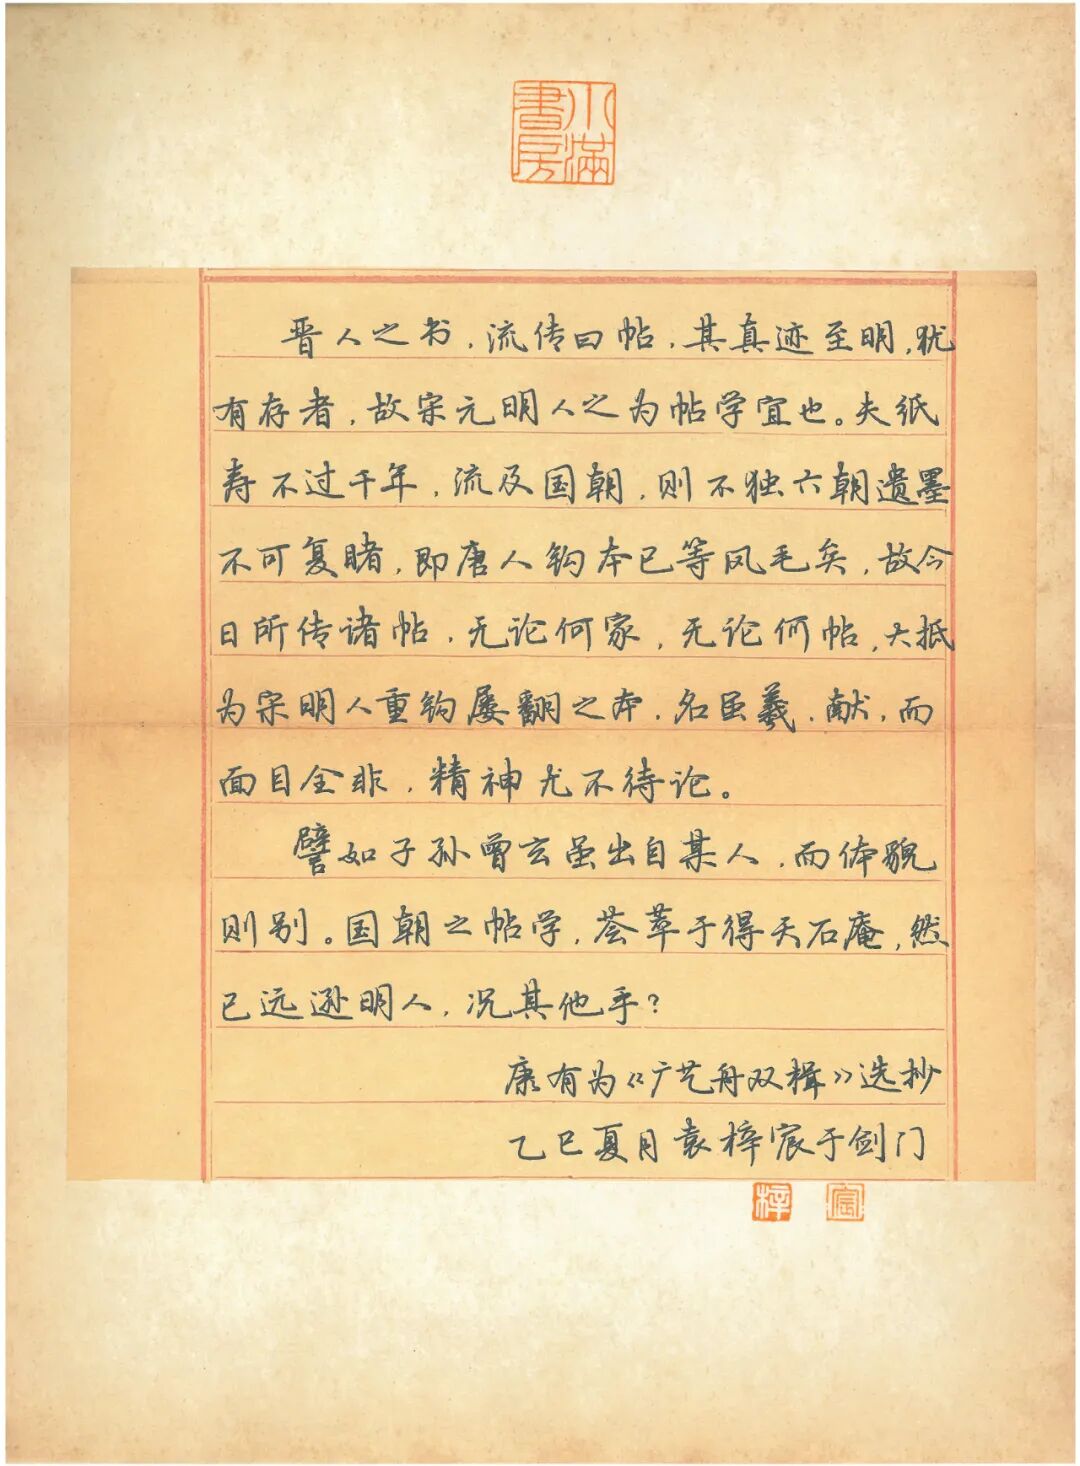 小满
書房
晋人之书，流传曰帖，其真迹至明，犹
有存者，故宋元明人之为帖学宜也。夫纸
寿不过千年，流及国朝，则不独六朝遗墨
不可复睹，即唐人钩本已等凤毛矣，故今
日所传诸帖，无论何家，无论何帖，大抵
为宋明人重钩屡翻之本，名虽羲、献，而
面目全非，精神尤不待论。
譬如子孙曾玄虽出自某人，而体貌
则别。国朝之帖学，荟萃于得天石庵，然
已远逊明人，况其他乎？
康有为《广艺舟双楫》选抄
乙巳夏月袁梓宸于剑门
梓
宸